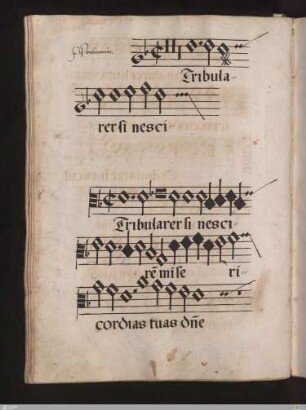 Tribula-
rer si nesci-
Tribularer si nesci-
rē mise ri-
cordias tuas dñe